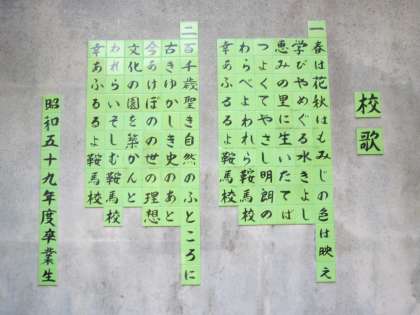 校歌
一 春は花秋はもみじの色は映え
学びやめぐる水きよし
恵みの里に生いたてば
つよくてやさし明朗の
わらべよわれら鞍馬校
幸あふるるよ鞍馬校
二 百千歳聖き自然のふところに
古きゆかしき史のあと
今あけぼのの世の理想
文化の園を築かんと
われらいそしむ鞍馬校
幸あふるるよ鞍馬校
昭和五十九年度卒業生